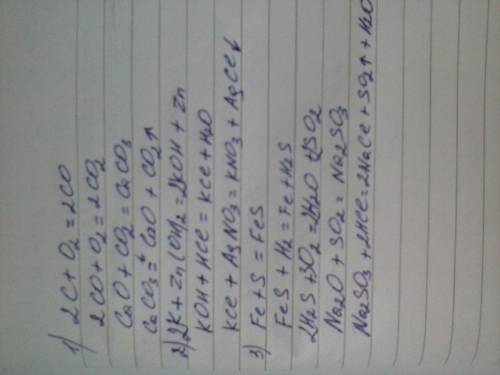 1) 2C + O₂ = 2CO
2CO + O₂ = 2CO₂
CaO + CO₂ = CaCO₃
CaCO₃ = CaO + CO₂↑
2) 2K + Zn(OH)₂ = 2KOH + Zn
KOH + HCl = KCl + H₂O
KCl + AgNO₃ = KNO₃ + AgCl↓
3) Fe + S = FeS
FeS + H₂ = Fe + H₂S
2H₂S + 3O₂ = 2H₂O + 2SO₂
Na₂O + SO₂ = Na₂SO₃
Na₂SO₃ + 2HCl = 2NaCl + SO₂↑ + H₂O